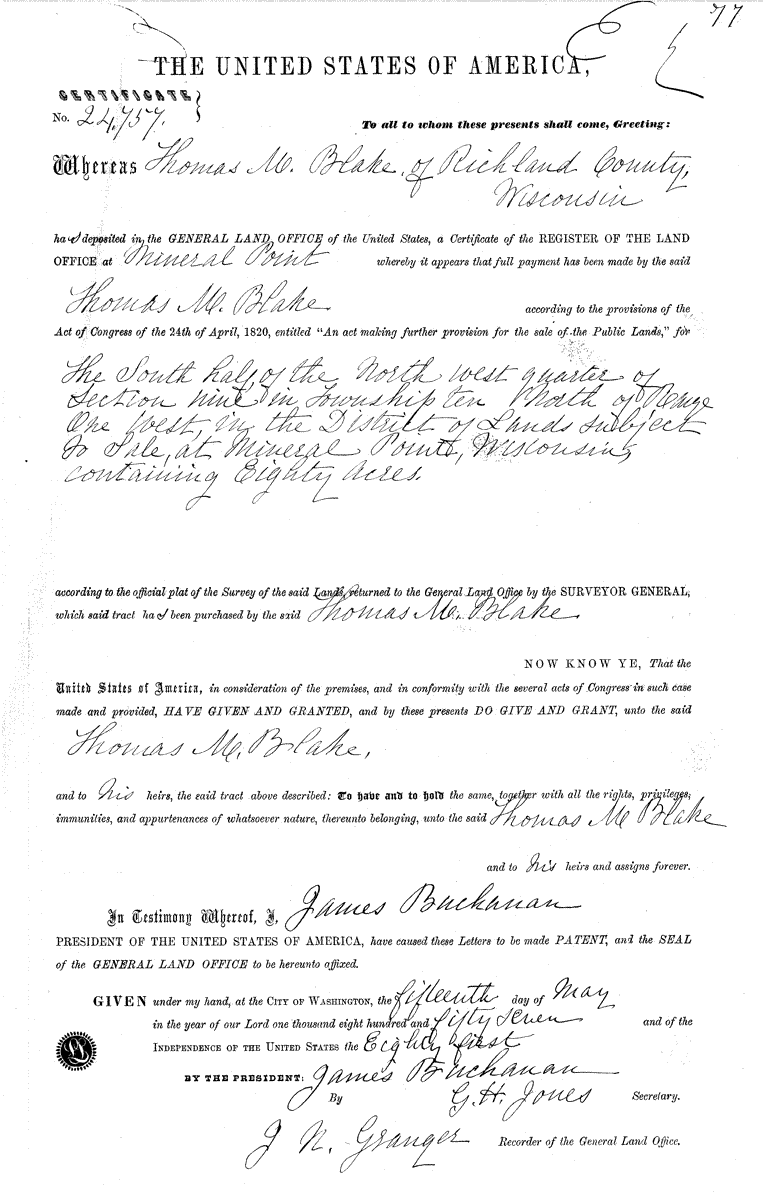 77
THE UNITED STATES OF AMERICA,
CERTIFICATE
No. 24,757.
To all to whom these presents shall come, Greeting:
Whereas Thomas M. Blake, of Richland County,
Wisconsin
had deposited in the GENERAL LAND OFFICE of the United States, a Certificate of the REGISTER OF THE LAND
OFFICE at Mineral Point whereby it appears that full payment has been made by the said
Thomas M. Blake according to the provisions of the
Act of Congress of the 24th of April, 1820, entitled "An act making further provision for the sale of the Public Lands," for
the South half of the North west quarter of
Section nine in Township ten North of Range
One West, in the District of Lands subject
to Sale, at Mineral Point, Wisconsin,
containing Eighty acres.
according to the official plat of the Survey of the said Lands, returned to the General Land Office by the SURVEYOR GENERAL,
which said tract had been purchased by the said Thomas M. Blake
NOW KNOW YE, That the
United States of America, in consideration of the premises, and in conformity with the several acts of Congress in such case
made and provided, HAVE GIVEN AND GRANTED, and by these presents DO GIVE AND GRANT, unto the said
Thomas M. Blake,
and to his heirs, the said tract above described: To have and to hold the same, together with all the rights, privileges,
immunities, and appurtenances of whatsoever nature, thereunto belonging, unto the said Thomas M Blake
and to his heirs and assigns forever.
In Testimony Whereof, I, James Buchanan
PRESIDENT OF THE UNITED STATES OF AMERICA, have caused these Letters to be made PATENT, and the SEAL
of the GENERAL LAND OFFICE to be hereunto affixed.
GIVEN under my hand, at the CITY OF WASHINGTON, the fifteenth day of May
in the year of our Lord one thousand eight hundred and fifty seven and of the
INDEPENDENCE OF THE UNITED STATES the Eighty first
BY THE PRESIDENT: James Buchanan
By G. H. Jones Secretary.
J N. Granger Recorder of the General Land Office.